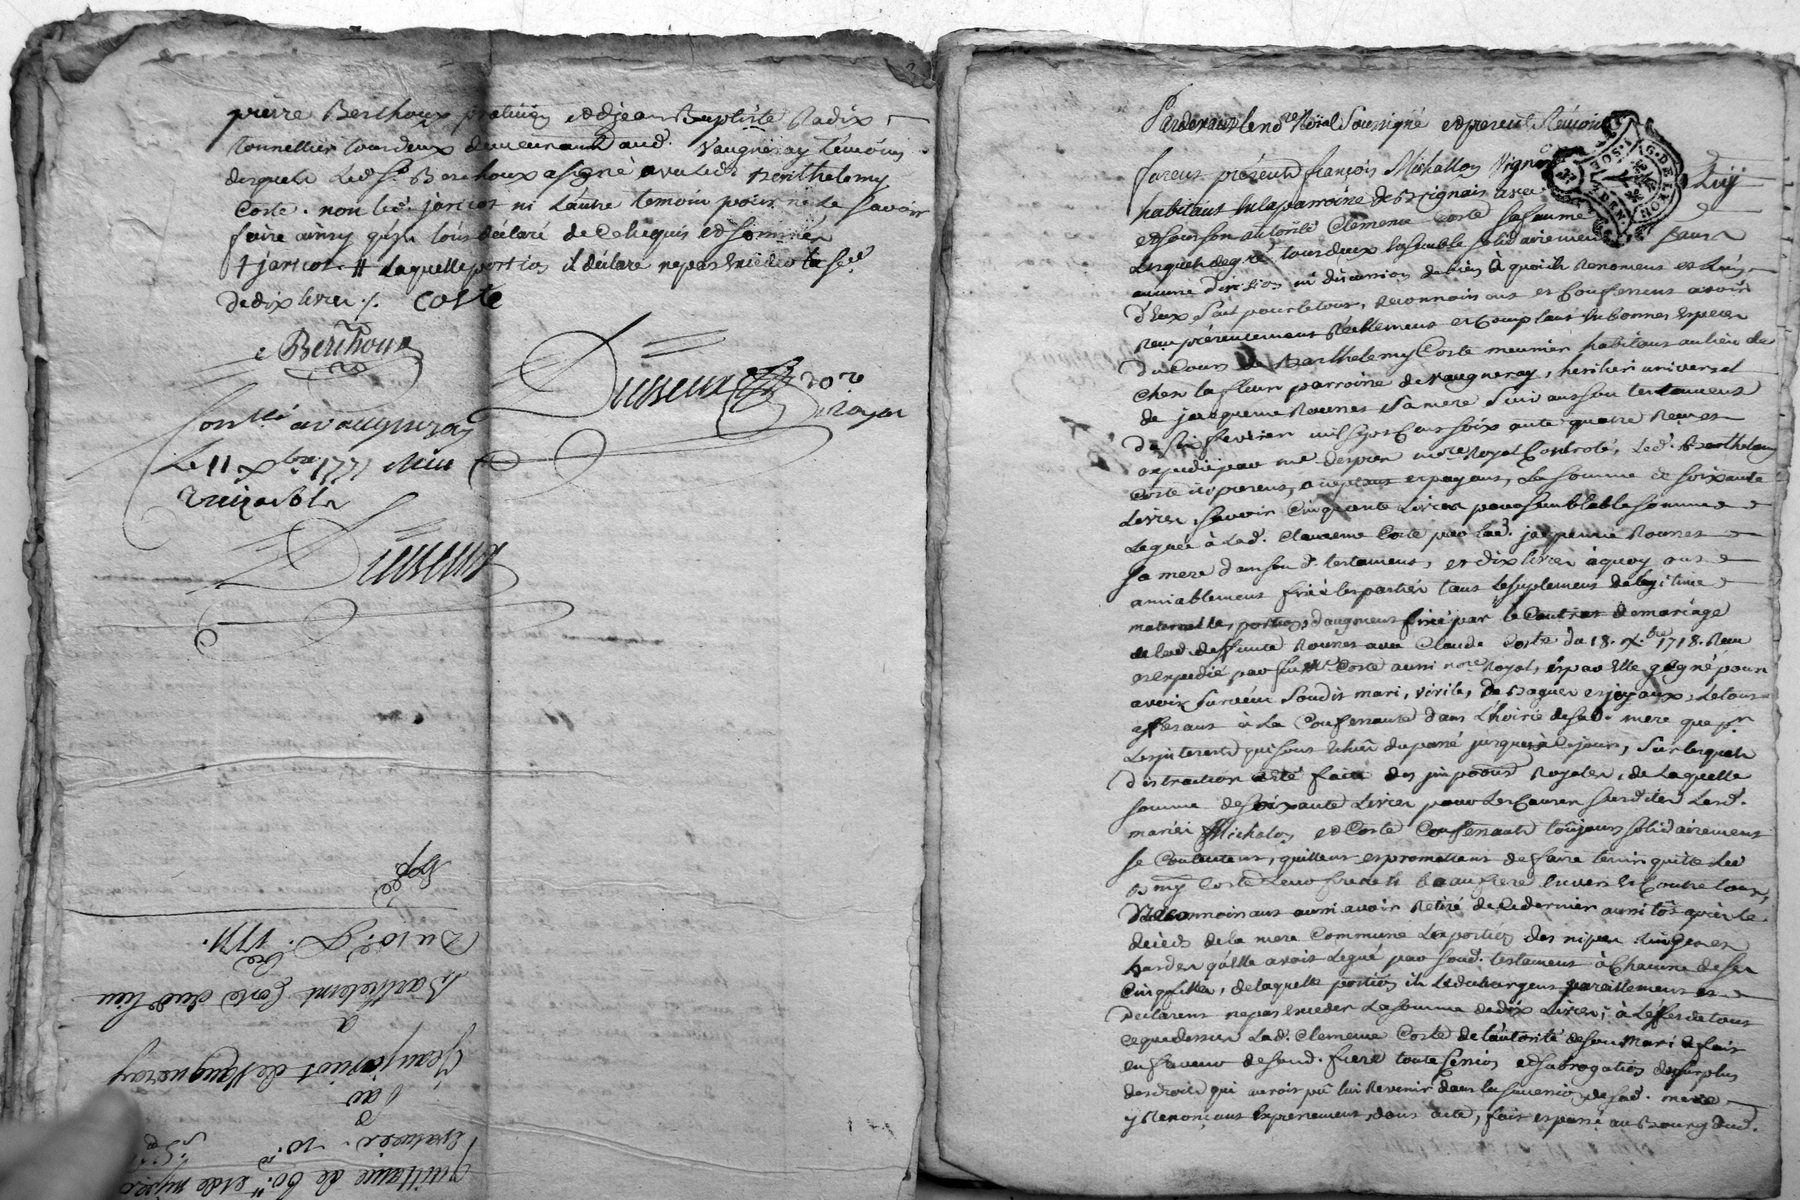 pierre Berthoux praticien et de jean Baptiste Radix
Tonnellier tous deux demeurant aud. Vaugneray temoins
desquels led. Sr. Berthoux a signé avec led. Berthelemy
Coste. non led. jaricot ni l'autre temoin pour ne le savoir
faire ainsy qu'ils l'ont déclaré de ce enquis et sommés
+ jaricot. # laquelle portion il déclare ne pas exceder la so.e
de dix livres ./. Coste
Berthoux
Dusseux no.re
royal
Con.lé a vaugneray
Le 11 X.bre 1771 Reçu
treize sols
Dusseux
Exp.ée
Du 10.e X.bre 1771.
Barthelemi Coste dud. lieu
a
Jean jaricot de Vaugneray
par
Quittance de 60.# et de nipes
Pardevant le no.re Roial Soussigné et présents Témoins
furent présents françois Michallon Vigneron
habitant en la parroisse de Brignais et
et sous son autorité Clemence Coste sa famme
Lesquels de gré tous deux ensemble solidairement sans
aucune division ni discussion de biens à quoi ils renoncent et l'un
d'eux seul pour le tout, reconnoissent et confessent avoir
reçu présentement réellement et comptant en bonnes especes
du cours de Barthelemy Coste meunier habitant au lieu de
Chez la fleur parroisse de Vaugneray, heritier universel
de jacqueme Rouses sa mere suivant son testament
du six fevrier mil sept cens soixante quatre reçu et
expedié par me. no.re Royal Controlé, led. Barthelemy
Coste icy present, acceptant et payant, la somme de soixante
Livres, savoir Cinquante Livres pour semblable somme
leguée à lad. Clemence Coste par lad. jacqueme Rouses
sa mere dans son d. testament, et dix livres à quoy ont
amiablement fixé les parties tant le suplement de legitime
maternelle, portion d'augment fixé par le Contrat de mariage
de lad. deffunte Rouses avec Claude Coste du 18. X.bre 1718. Reçu
et expedié par feu Me. Coste aussi no.re Royal, et par elle gagné pour
avoir survecu soudit mari, virile, de Bagues et joyaux, le tout
afferant à la Confessante dans l'hoirie de sad. mere que p.r
les interests qui sont échus du passé jusques à ce jour, sur lesquels
distraction a été faite des impositions Royales, de laquelle
somme de soixante Livres pour les causes susdites lesd.
mariés Michalon et Coste Confessants toûjours solidairement
se contentent, quittent et promettent de faire tenir quitte led.
B.my Coste leur frere et beaufrere envers et contre tous,
Reconnoissant aussi avoir retiré de ce dernier aussitôt après le
décès de la mere commune les portions des nipes linges et
hardes qu'elle avoit legué par soud. testament à chacune de ses
Cinq filles, de laquelle portion ils le dechargent pareillement et
declarent ne pas exceder la somme de dix Livres; à l'effet de tout
ce que dessus lad. Clemence Coste de l'autorité de son Mari a fait
en faveur de soud. frere toute Cession et subrogation du surplus
des droits qui auroit pû lui revenir dans la succession de sad. mere
y renonçant expressement, dont acte, fait et passé au Bourg dud.